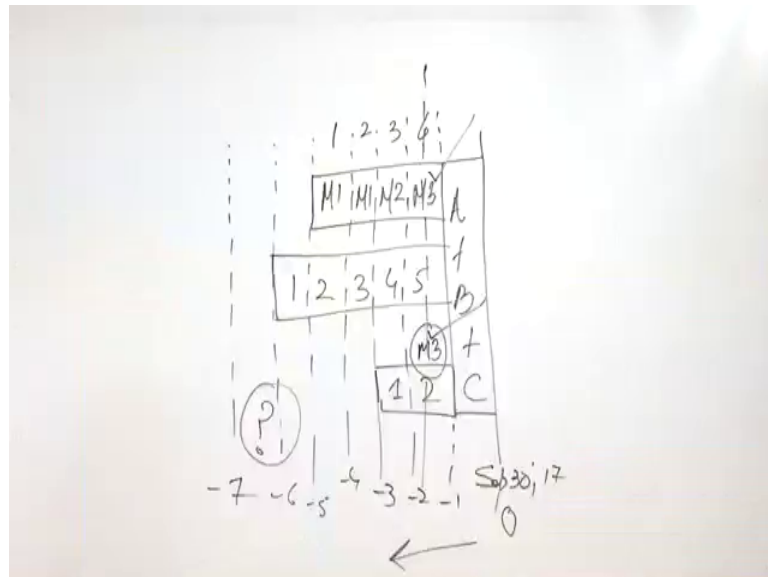 1 2 3 4
M1 M1 M2 M3 A
+
1 2 3 4 5 B
M3 +
1 2 C
?
-7 -6 -5 -4 -3 -2 -1 Sep 30, 17
0